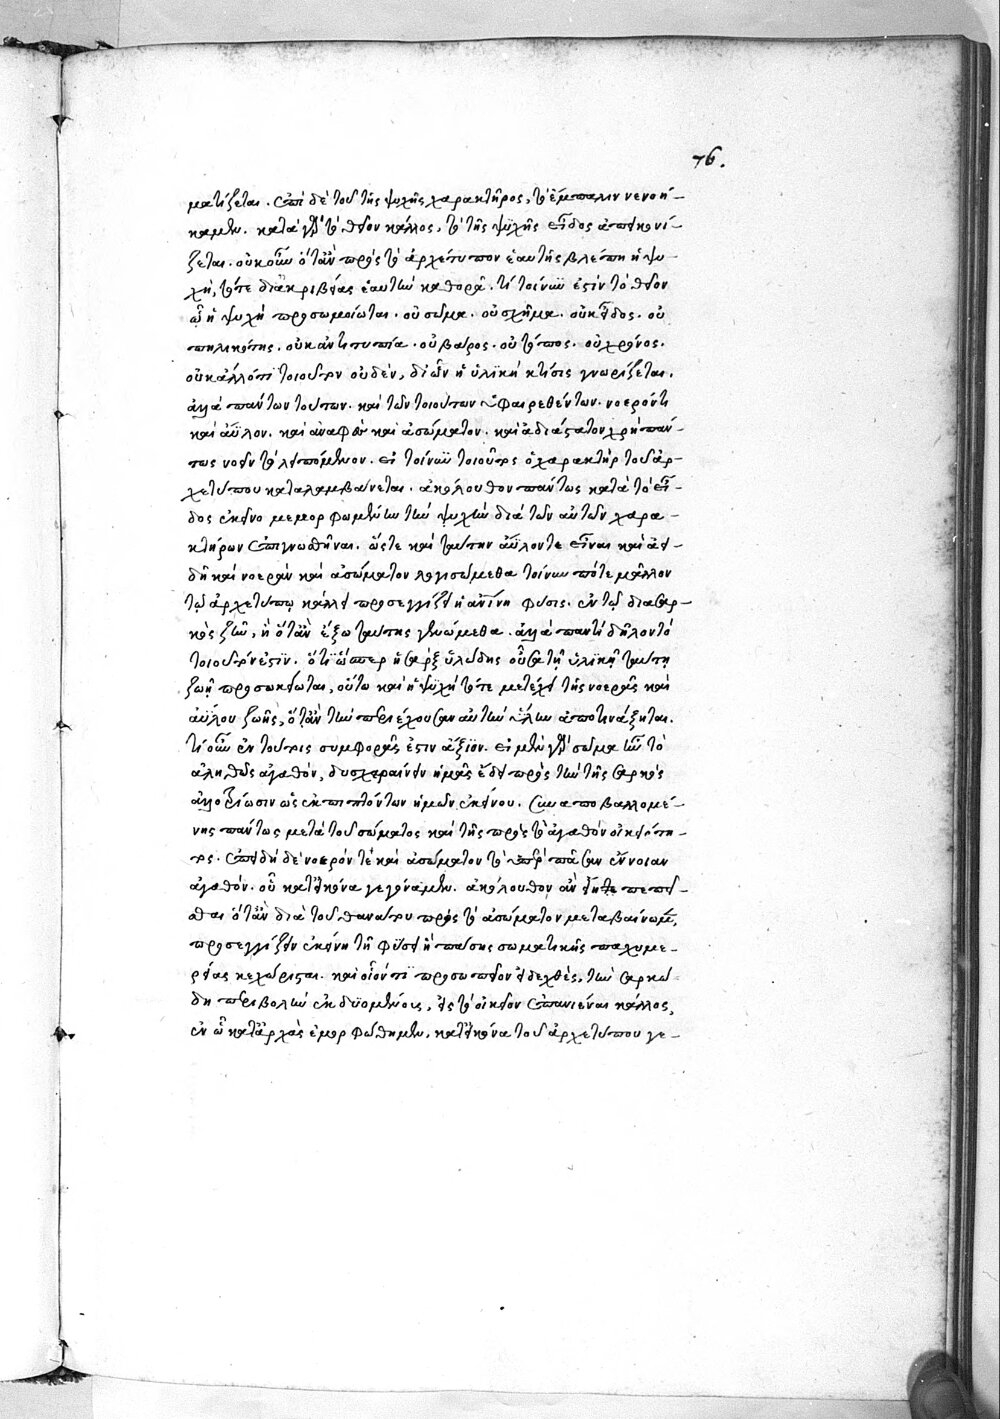 76.
ματίζεται. ἐπὶ δὲ τοῦ τῆς ψυχῆς χαρακτῆρος, τὸ ἔμπαλιν νενοή-
καμεν. κατὰ γὰρ τὸ θεῖον κάλλος, τὸ τῆς ψυχῆς εἶδος ἀπεικονί-
ζεται. οὐκοῦν ὅταν πρὸς τὸ ἀρχέτυπον ἑαυτῆς βλέπη ἡ ψυ-
χὴ, τότε δι' ἀκριβείας ἑαυτὴν καθορᾶ. τί τοίνυν ἐστὶν τὸ θεῖον
ὧ ἡ ψυχὴ προσωμοίωται. οὐ σῶμα. οὐ σχῆμα. οὐκ εἶδος. οὐ
πηλικότης. οὐκ ἀντιτυπία. οὐ βάρος. οὐ τόπος. οὐ χρόνος.
οὐκ ἄλλό τι τοιοῦτον οὐδὲν, δι' ὧν ἡ ὑλικὴ κτίσις γνωρίζεται.
ἀλλὰ πάντων τούτων. καὶ τῶν τοιούτων ὑφαιρεθέντων. νοερόν τι
καὶ ἄϋλον. καὶ ἀναφὲς καὶ ἀσώματον. καὶ ἀδιάστατον χρὴ πάν-
τως νοεῖν τὸ λειπόμενον. εἰ τοίνυν τοιοῦτος ὁ χαρακτὴρ τοῦ ἀρ-
χετύπου καταλαμβάνεται. ἀκόλουθον πάντως κατὰ τὸ εἶ-
δος ἐκεῖνο μεμορφωμένην τὴν ψυχὴν διὰ τῶν αὐτῶν χαρα-
κτήρων ἐπιγνωσθῆναι. ὥστε καὶ ταύτην ἄϋλόν τε εἶναι καὶ ἀει-
δῆ καὶ νοερὰν καὶ ἀσώματον λογισώμεθα τοίνυν πότε μᾶλλον
τῷ ἀρχετύπῳ κάλλει προσεγγίζει ἡ ἀνθρωπίνη φύσις. ἐν τῷ διὰ σαρ-
κὸς ζῆν, ἢ ὅταν ἔξω ταύτης γενώμεθα. ἀλλὰ παντὶ δῆλον τὸ
τοιοῦτόν ἐστιν. ὅτι ὥσπερ ἡ σὰρξ ὑλώδης οὖσα τῆ ὑλικῆ ταύτη
ζωῆ προσωκείωται, οὕτω καὶ ἡ ψυχὴ τότε μετέχει τῆς νοερᾶς καὶ
ἀΰλου ζωῆς, ὅταν τὴν περιέχουσαν αὐτὴν ὕλην ἀποτινάξηται.
τί οὖν ἐν τούτοις συμφορᾶς ἐστιν ἄξιον. εἰ μὲν γὰρ σῶμα ἦν τὸ
ἀληθῶς ἀγαθὸν, δυσχεραίνειν ἡμᾶς ἔδει πρὸς τὴν τῆς σαρκὸς
ἀλλοτρίωσιν ὡς ἐκπιπτόντων ἡμῶν ἐκείνου. συναποβαλλομέ-
νης πάντως μετὰ τοῦ σώματος καὶ τῆς πρὸς τὸ ἀγαθὸν οἰκειότη-
τος. ἐπειδὴ δὲ νοερόν τε καὶ ἀσώματον τὸ ὑπὲρ πᾶσαν ἔννοιαν
ἀγαθὸν. οὗ κατ' εἰκόνα γεγόναμεν. ἀκόλουθον ἂν εἴητε πεπεῖ-
σθαι ὅταν διὰ τοῦ θανάτου πρὸς τὸ ἀσώματον μεταβαίνωμεν,
προσεγγίζειν ἐκείνη τῆ φύσει ἣ πάσης σωματικῆς παχυμε-
ρείας κεχώρισται. καὶ οἷόν τι προσωπεῖον εἰδεχθὲς, τὴν σαρκώ-
δη περιβολὴν ἐκδυομένους, εἰς τὸ οἰκεῖον ἐπανιέναι κάλλος,
ἐν ᾧ κατ' ἀρχὰς ἐμορφώθημεν, κατ' εἰκόνα τοῦ ἀρχετύπου γε-